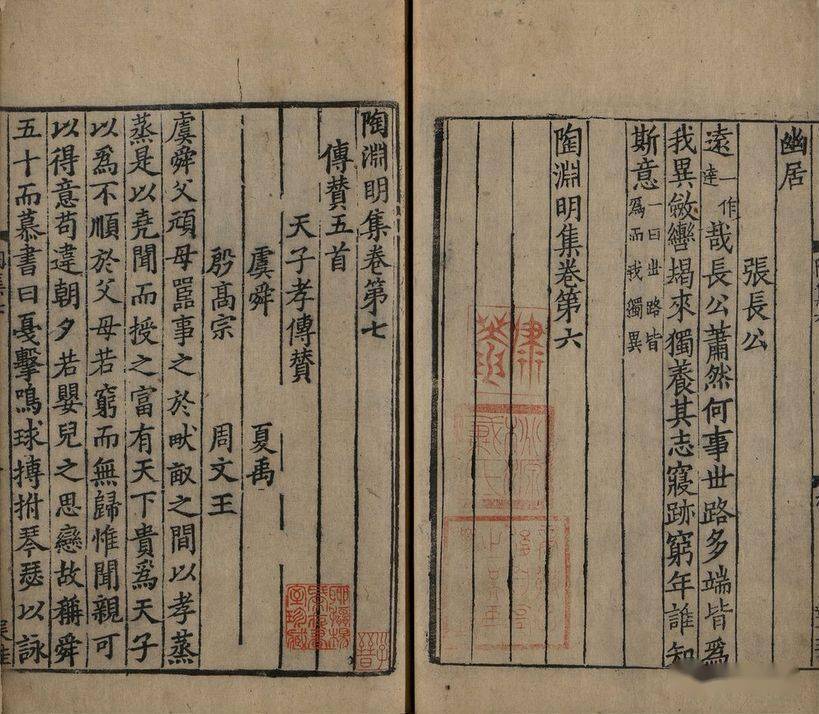 幽居
張長公
遠一作達哉長公蕭然何事丗路多端皆爲
我異斂轡朅來獨養其志寢跡窮年誰知
斯意一曰丗路皆爲而我獨異
陶淵明集卷第六
陶淵明集卷第七
傳賛五首
天子孝傳賛
虞舜　夏禹
殷髙宗　周文王
虞舜父頑母嚚事之於畎畝之間以孝蒸
蒸是以堯聞而授之富有天下貴爲天子
以爲不順於父母若窮而無歸惟聞親可
以得意苟違朝夕若嬰兒之思戀故稱舜
五十而慕書曰戞擊鳴球搏拊琴瑟以詠